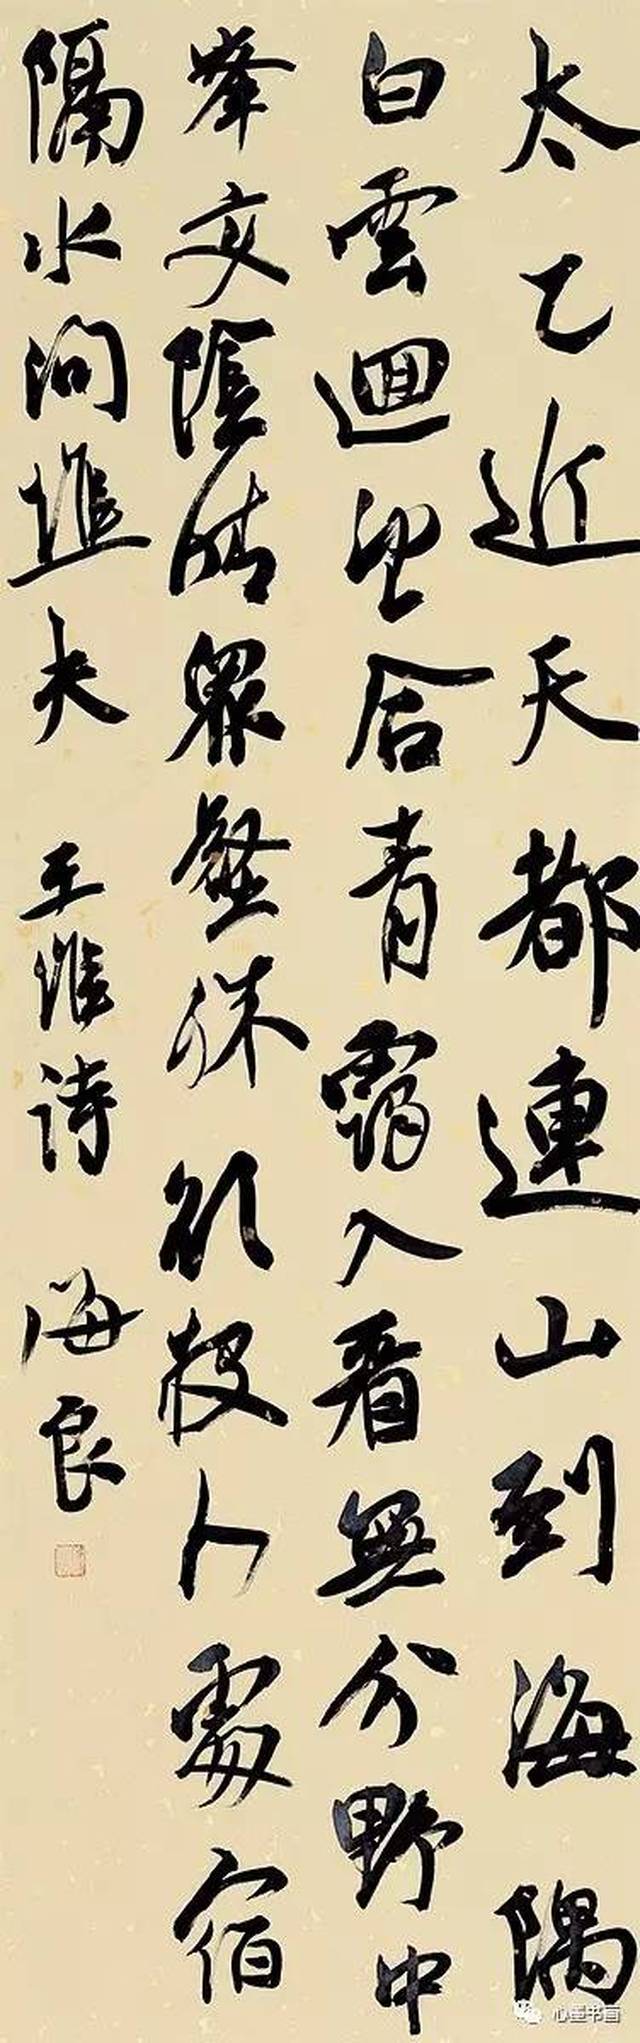 太乙近天都連山到海隅
白雲迴望合青靄入看無分野中
峯变陰晴眾壑殊欲投人處宿
隔水問樵夫 王維詩 海良